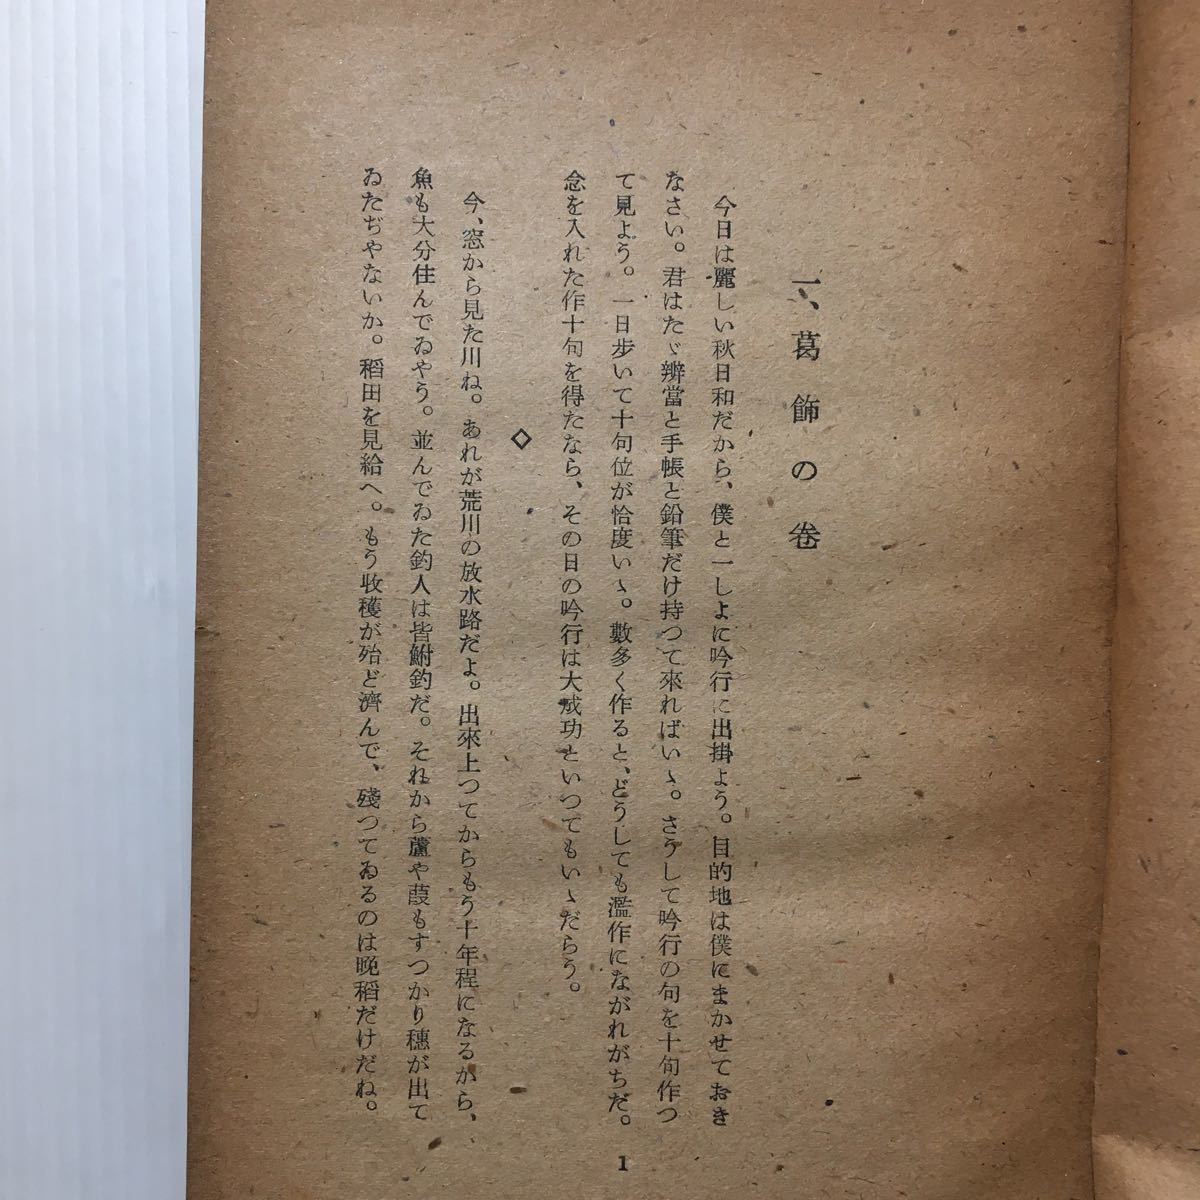 一、葛飾の巻
今日は麗しい秋日和だから、僕と一しよに吟行に出掛よう。目的地は僕にまかせておき
なさい。君はたゞ辨當と手帳と鉛筆だけ持つて來ればいゝ。さうして吟行の句を十句作つ
て見よう。一日歩いて十句位が恰度いゝ。數多く作ると、どうしても濫作にながれがちだ。
念を入れた作十句を得たなら、その日の吟行は大成功といつてもいゝだらう。
◇
今、窓から見た川ね。あれが荒川の放水路だよ。出來上つてからもう十年程になるから、
魚も大分住んでゐやう。並んでゐた釣人は皆鮒釣だ。それから蘆や葭もすつかり穗が出て
ゐたぢやないか。稻田を見給へ。もう收穫が殆ど濟んで、殘つてゐるのは晩稻だけだね。
1